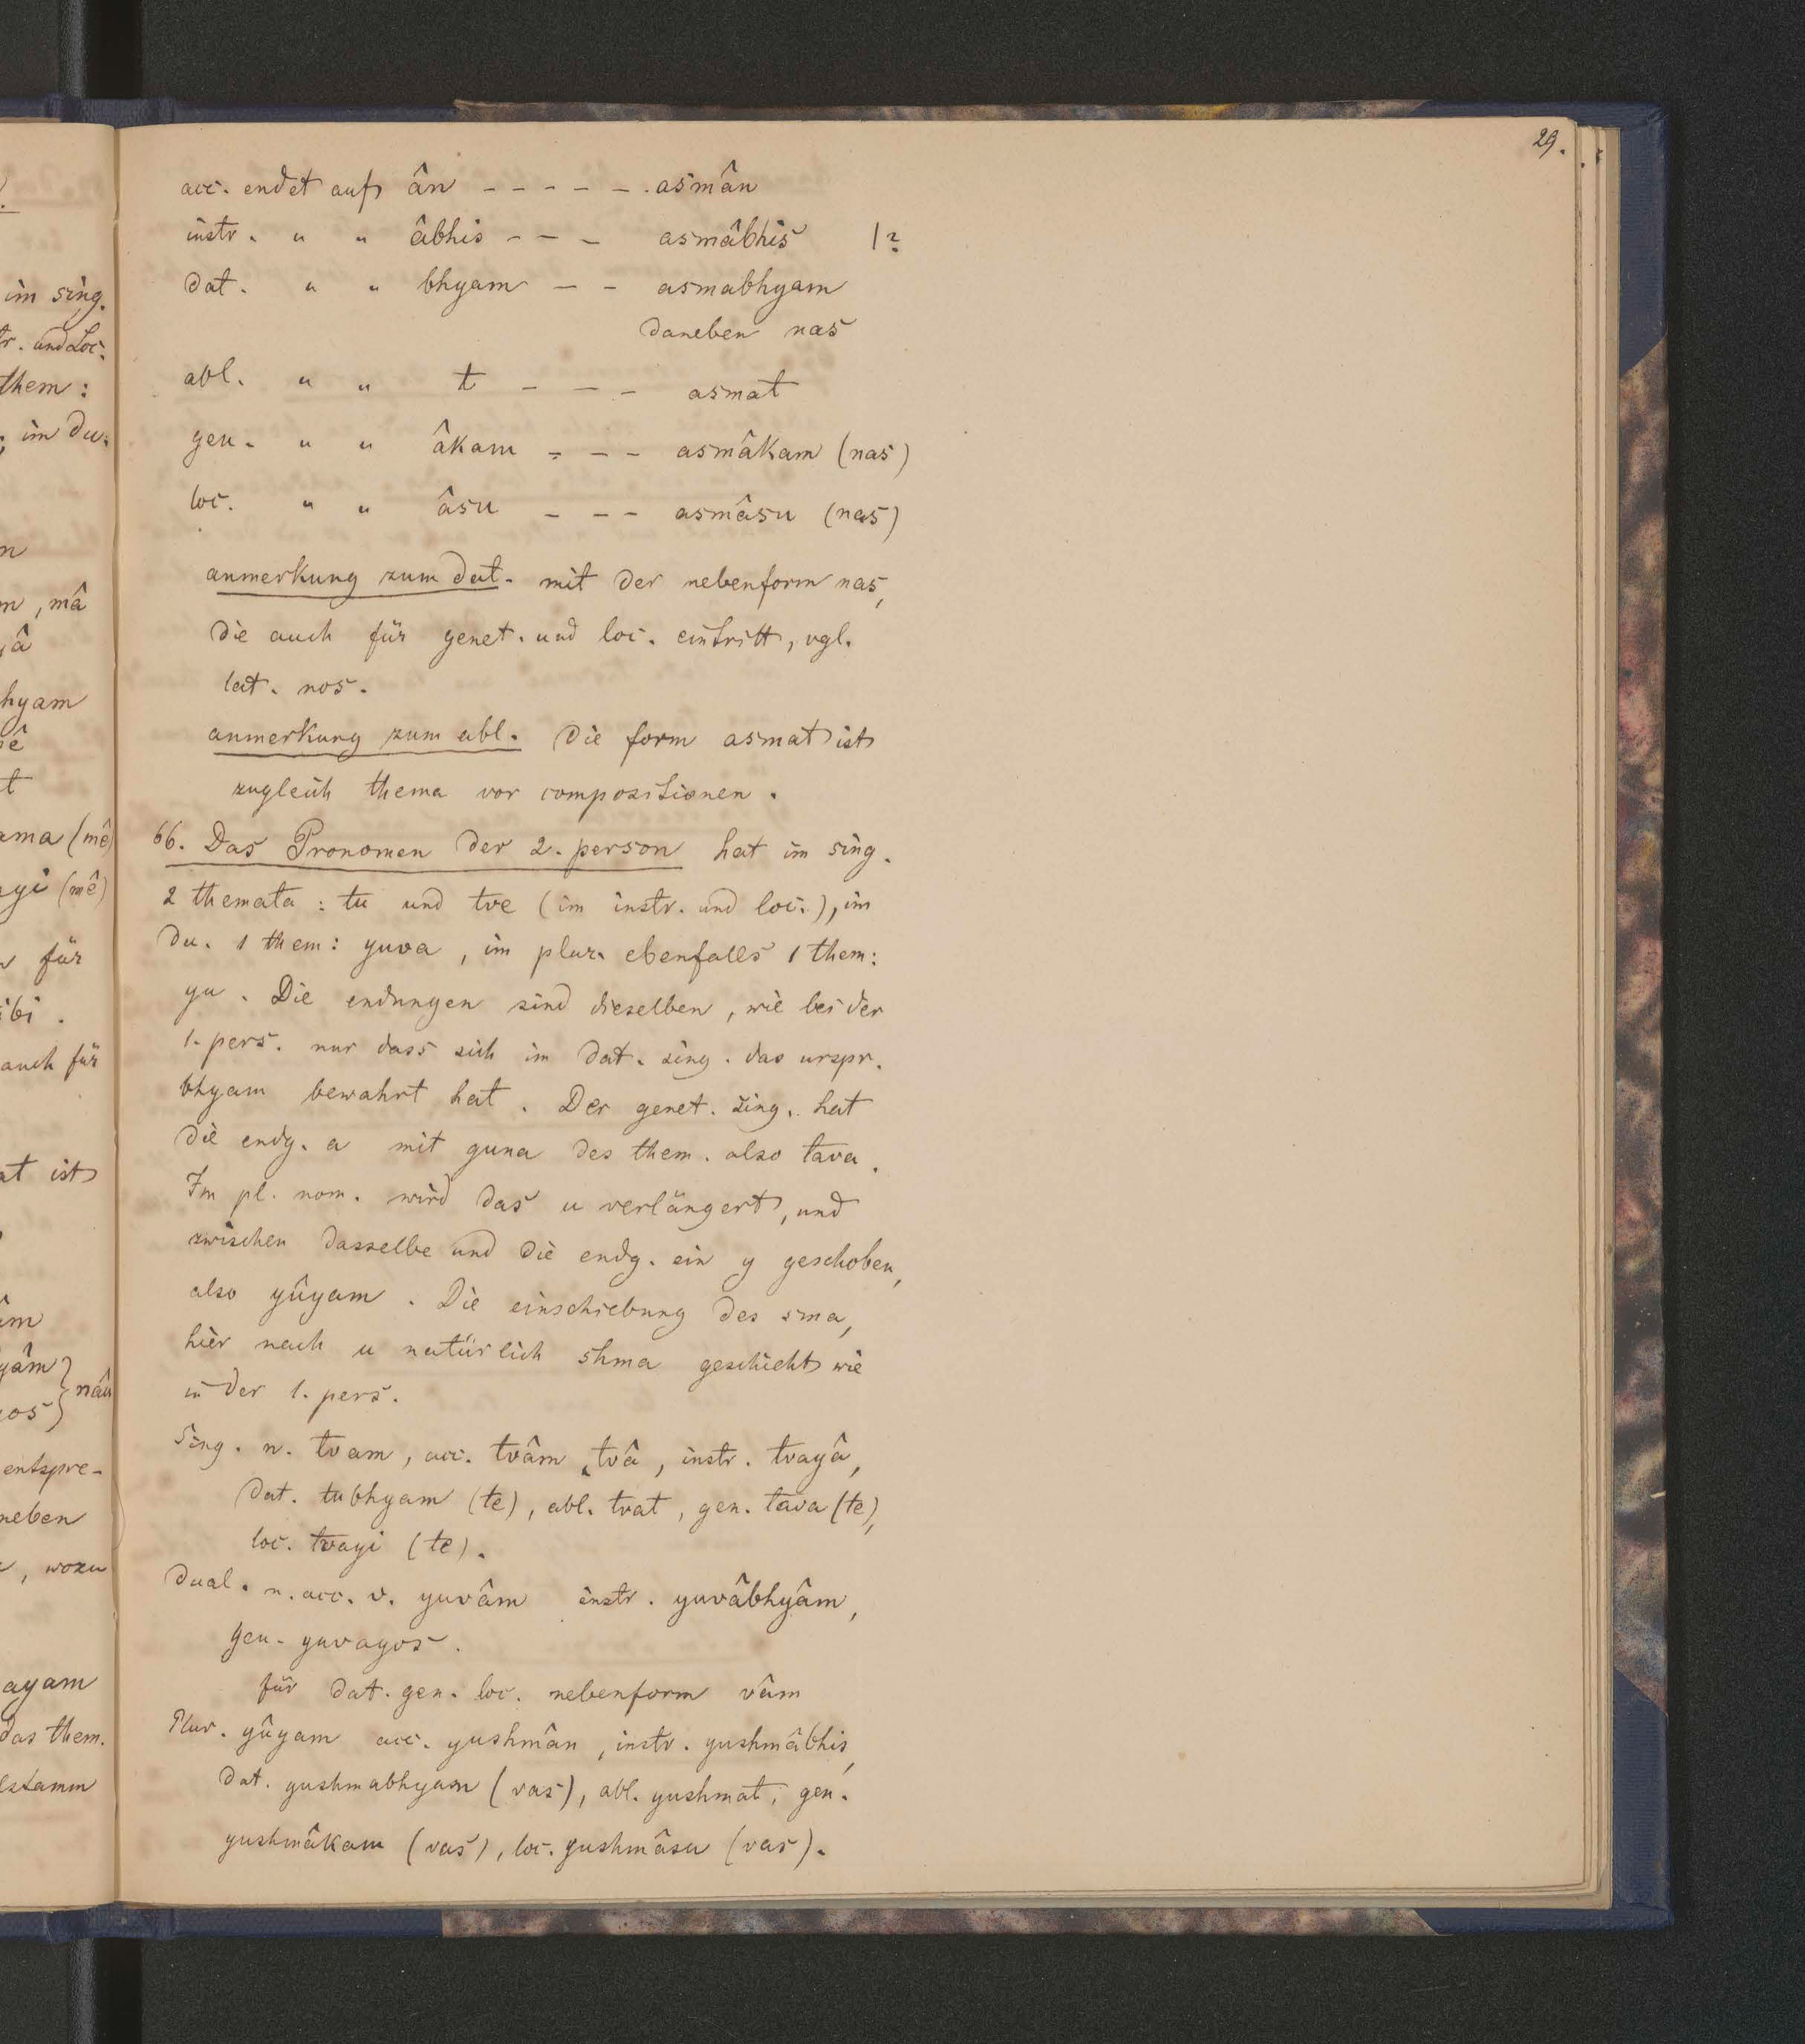 29.
acc. endet auf ân - - - - - . asmân
instr. " " âbhis - - - asmâbhis 1?
dat. " " bhyam - - asmabhyam
daneben nas
abl. " " t - - - asmat
gen. " " âkam - - - asmâkam (nas)
loc. " " âsu - - - asmâsu (nas)
anmerkung zum dat. mit der nebenform nas,
die auch für genet. und loc. eintritt, vgl.
lat. nos.
anmerkung zum abl. Die form asmat ist
zugleich thema vor compositionen.
66. Das Pronomen der 2. person hat im sing.
2 themata: tu und tve (im instr. und loc.), im
du. 1 them: yuva, im plur. ebenfalls 1 them:
yu. Die endungen sind dieselben, wie bei der
1. pers. nur dass sich im dat. sing. das urspr.
bhyam bewahrt hat. Der genet. sing. hat
die endg. a mit guna des them. also tava.
Im pl. nom. wird das u verlängert, und
zwischen dasselbe und die endg. ein y geschoben,
also yûyam. Die einschiebung des sma,
hier nach u natürlich shma geschieht wie
in der 1. pers.
Sing. n. tvam, acc. tvâm, tvâ, instr. tvayâ,
dat. tubhyam (te), abl. tvat, gen. tava (te),
loc. tvayi (te).
Dual. n. acc. v. yuvâm instr. yuvâbhyâm,
gen. yuvayos.
für dat. gen. loc. nebenform vâm
Plur. yûyam acc. yushmân, instr. yushmâbhis,
dat. yushmabhyam (vas), abl. yushmat, gen.
yushmâkam (vas), loc. yushmâsu (vas).
im sing.
und Loc.
them:
im du.
, mâ
hyam
t
ama (mê)
ayi (mê)
für
ibi.
auch für
at ist
âm
yâm } nâu
yos }
entspre-
neben
, wozu
ayam
das them.
lstamm